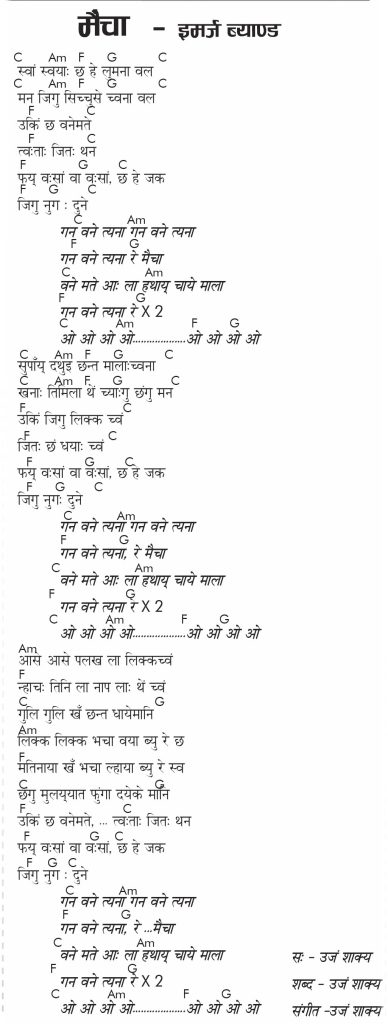 मैचा - इमर्ज ब्याण्ड
C Am F G C
स्वां स्वयाः छ हे लुमना वल
C Am F G C
मन जिगु सिच्चुसे च्वना वल
F C
उकिं छ वनेमते
F C
त्वःताः जितः थन
F G C
फय् वःसां वा वःसां, छ हे जक
F G C
जिगु नुग : दुने
C Am
गन वने त्यना गन वने त्यना
F G
गन वने त्यना रे मैचा
C Am
वने मते आः ला हथाय् चाये माला
F G
गन वने त्यना रे X 2
C Am F G
ओ ओ ओ ओ...................ओ ओ ओ ओ
C Am F G C
सुपाँय् दथुइ छन्त मालाःच्वना
C Am F G C
खनाः तिमिला थें च्याःगु छंगु मन
F C
उकिं जिगु लिक्क च्वं
F C
जितः छं धयाः च्वं
F G C
फय् वःसां वा वःसां, छ हे जक
F G C
जिगु नुगः दुने
C Am
गन वने त्यना गन वने त्यना
F G
गन वने त्यना, रे मैचा
C Am
वने मते आः ला हथाय् चाये माला
F G
गन वने त्यना रे X 2
C Am F G
ओ ओ ओ ओ...................ओ ओ ओ ओ
Am
आसे आसे पलख ला लिक्कच्वं
F
न्हाचः तिनि ला नाप लाः थें च्वं
C G
गुलि गुलि खँ छन्त धायेमानि
Am
लिक्क लिक्क भचा वया ब्यु रे छ
F
मतिनाया खँ भचा ल्हाया ब्यु रे स्व
C G
छंगु मुलय्‌यात फुंगा दयेके मानि
F C
उकिं छ वनेमते, ... त्वःताः जितः थन
F G C
फय् वःसां वा वःसां, छ हे जक
F G C
जिगु नुग : दुने
C Am
गन वने त्यना गन वने त्यना
F G
गन वने त्यना, रे ...मैचा
C Am
वने मते आः ला हथाय् चाये माला
सः - उजं शाक्य
F G
गन वने त्यना रे X 2
शब्द - उजं शाक्य
C Am F G
ओ ओ ओ ओ...................ओ ओ ओ ओ
संगीत -उजं शाक्य